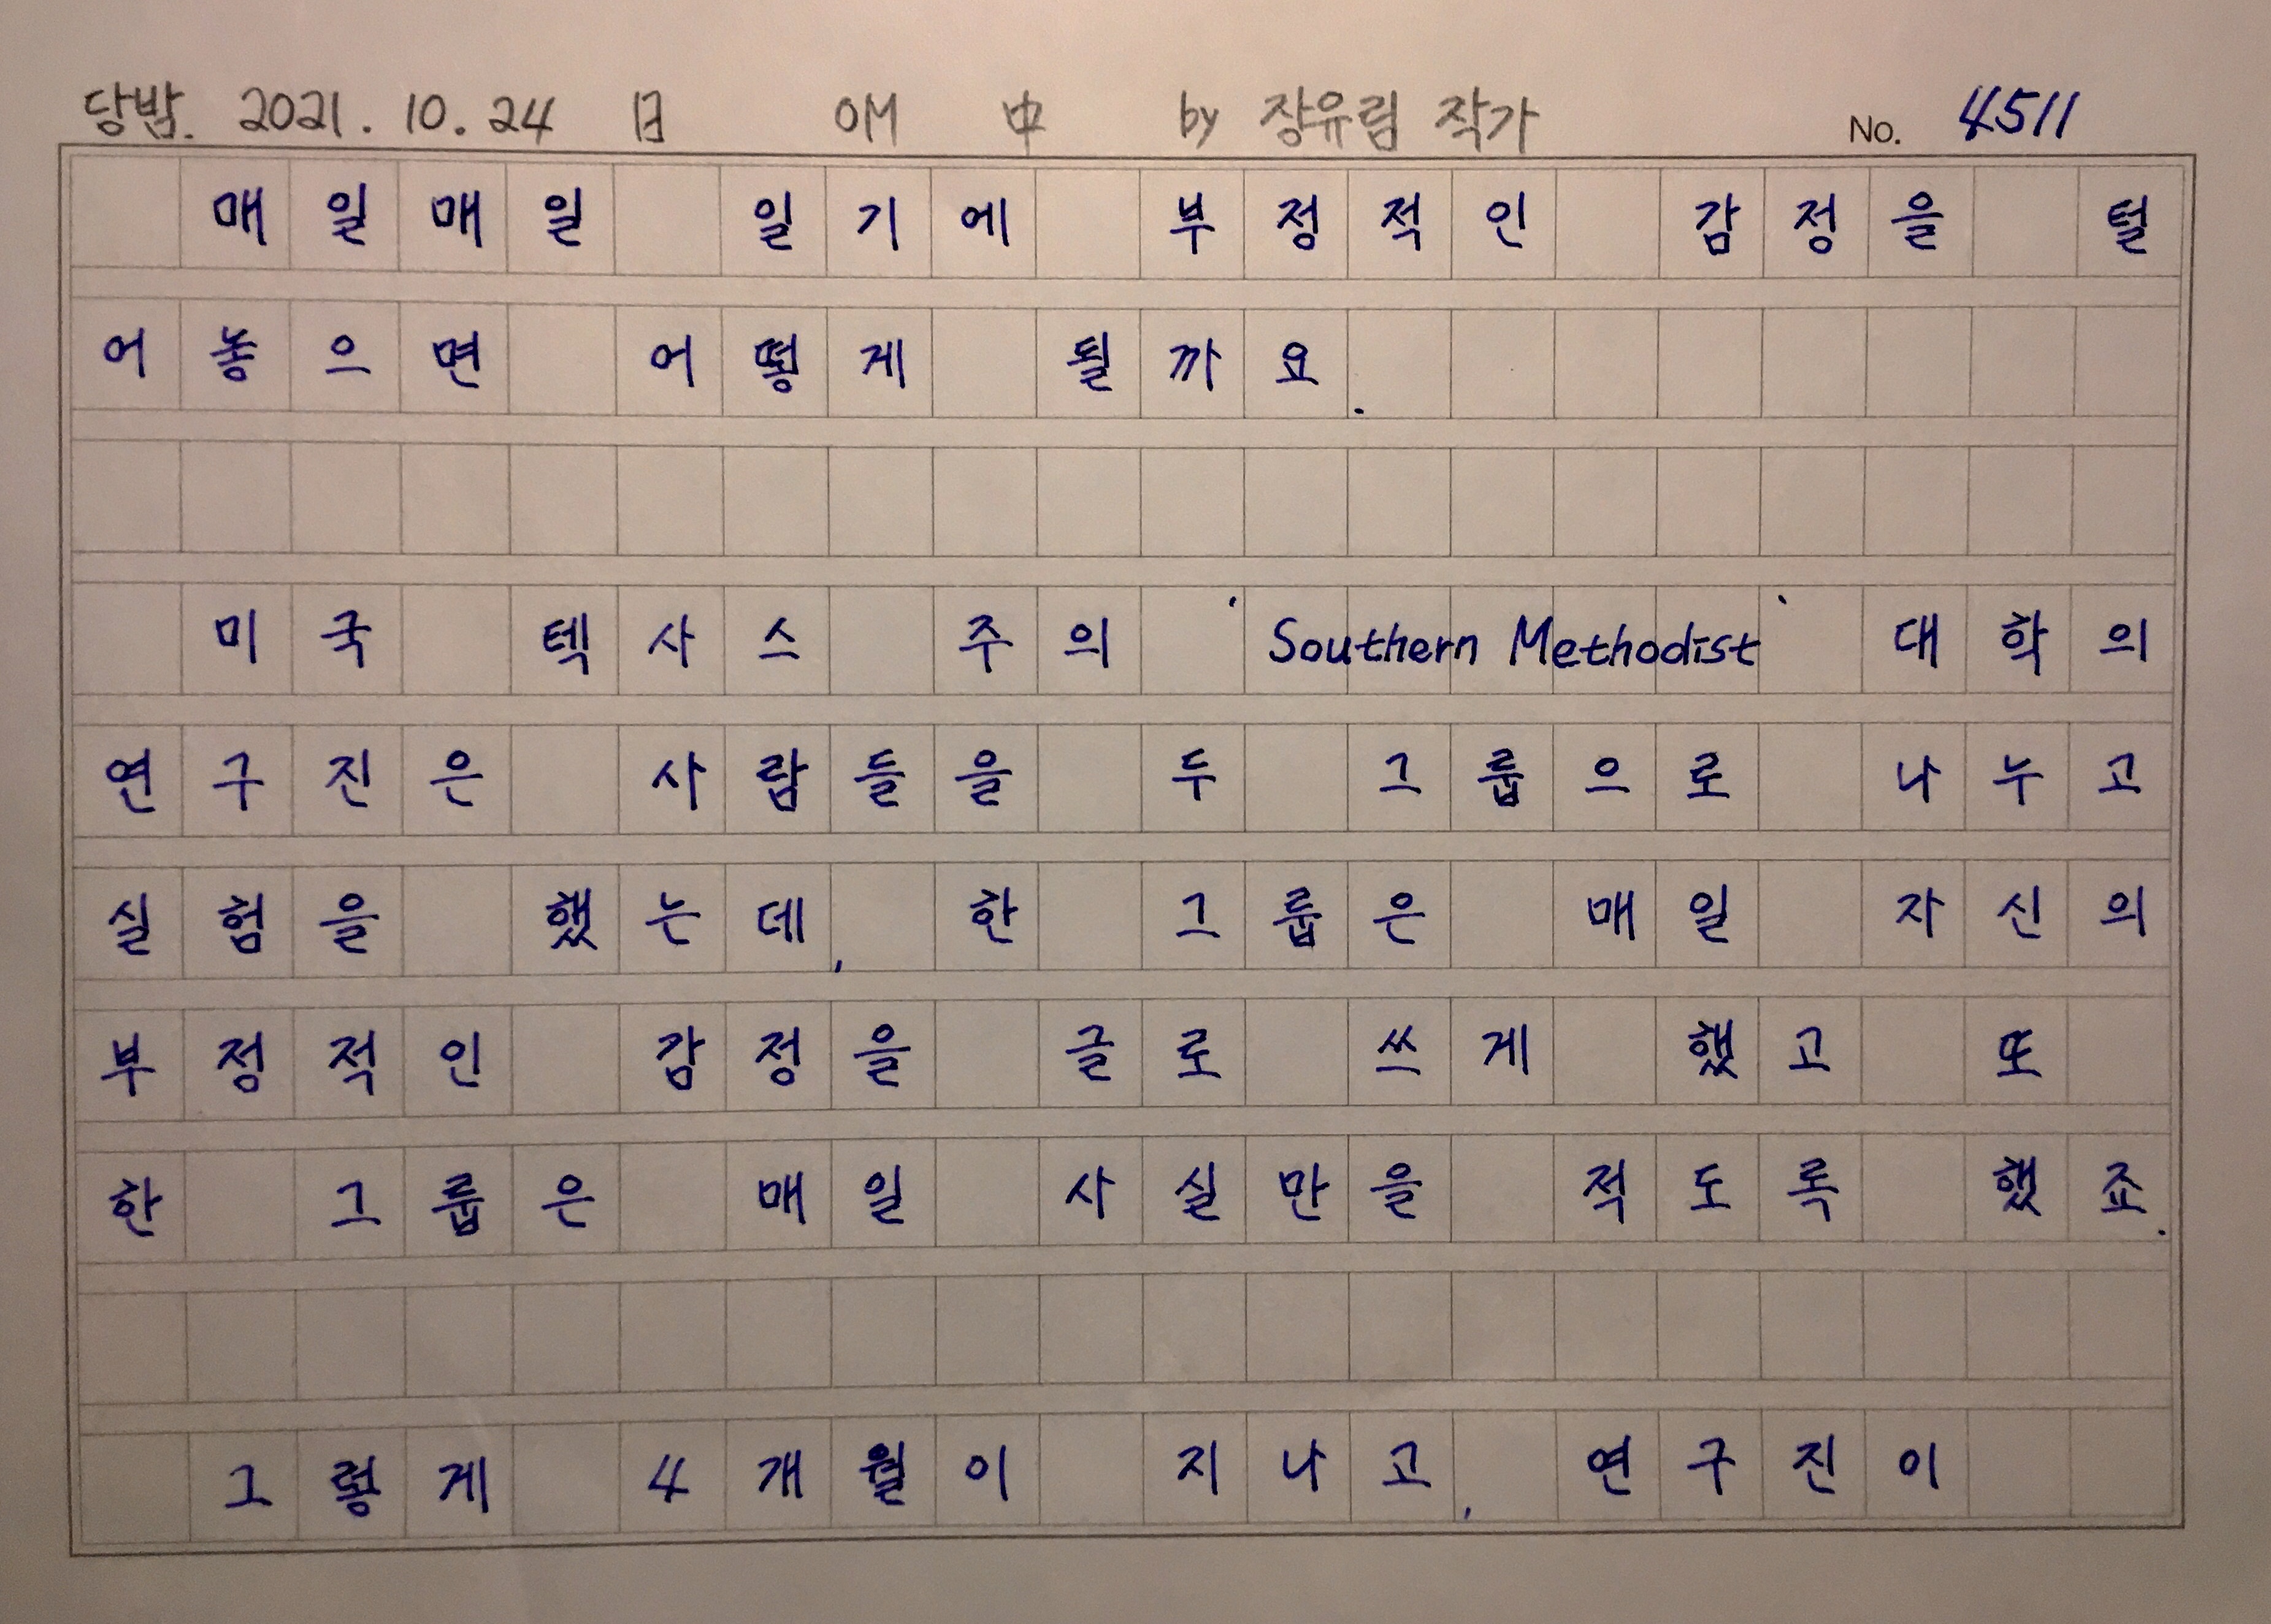 당밤. 2021. 10. 24 日 OM 中 by 장유림 작가 No. 4511
매일매일 일기에 부정적인 감정을 털
어놓으면 어떻게 될까요.
미국 텍사스 주의 'Southern Methodist' 대학의
연구진은 사람들을 두 그룹으로 나누고
실험을 했는데, 한 그룹은 매일 자신의
부정적인 감정을 글로 쓰게 했고 또
한 그룹은 매일 사실만을 적도록 했죠.
그렇게 4개월이 지나고, 연구진이